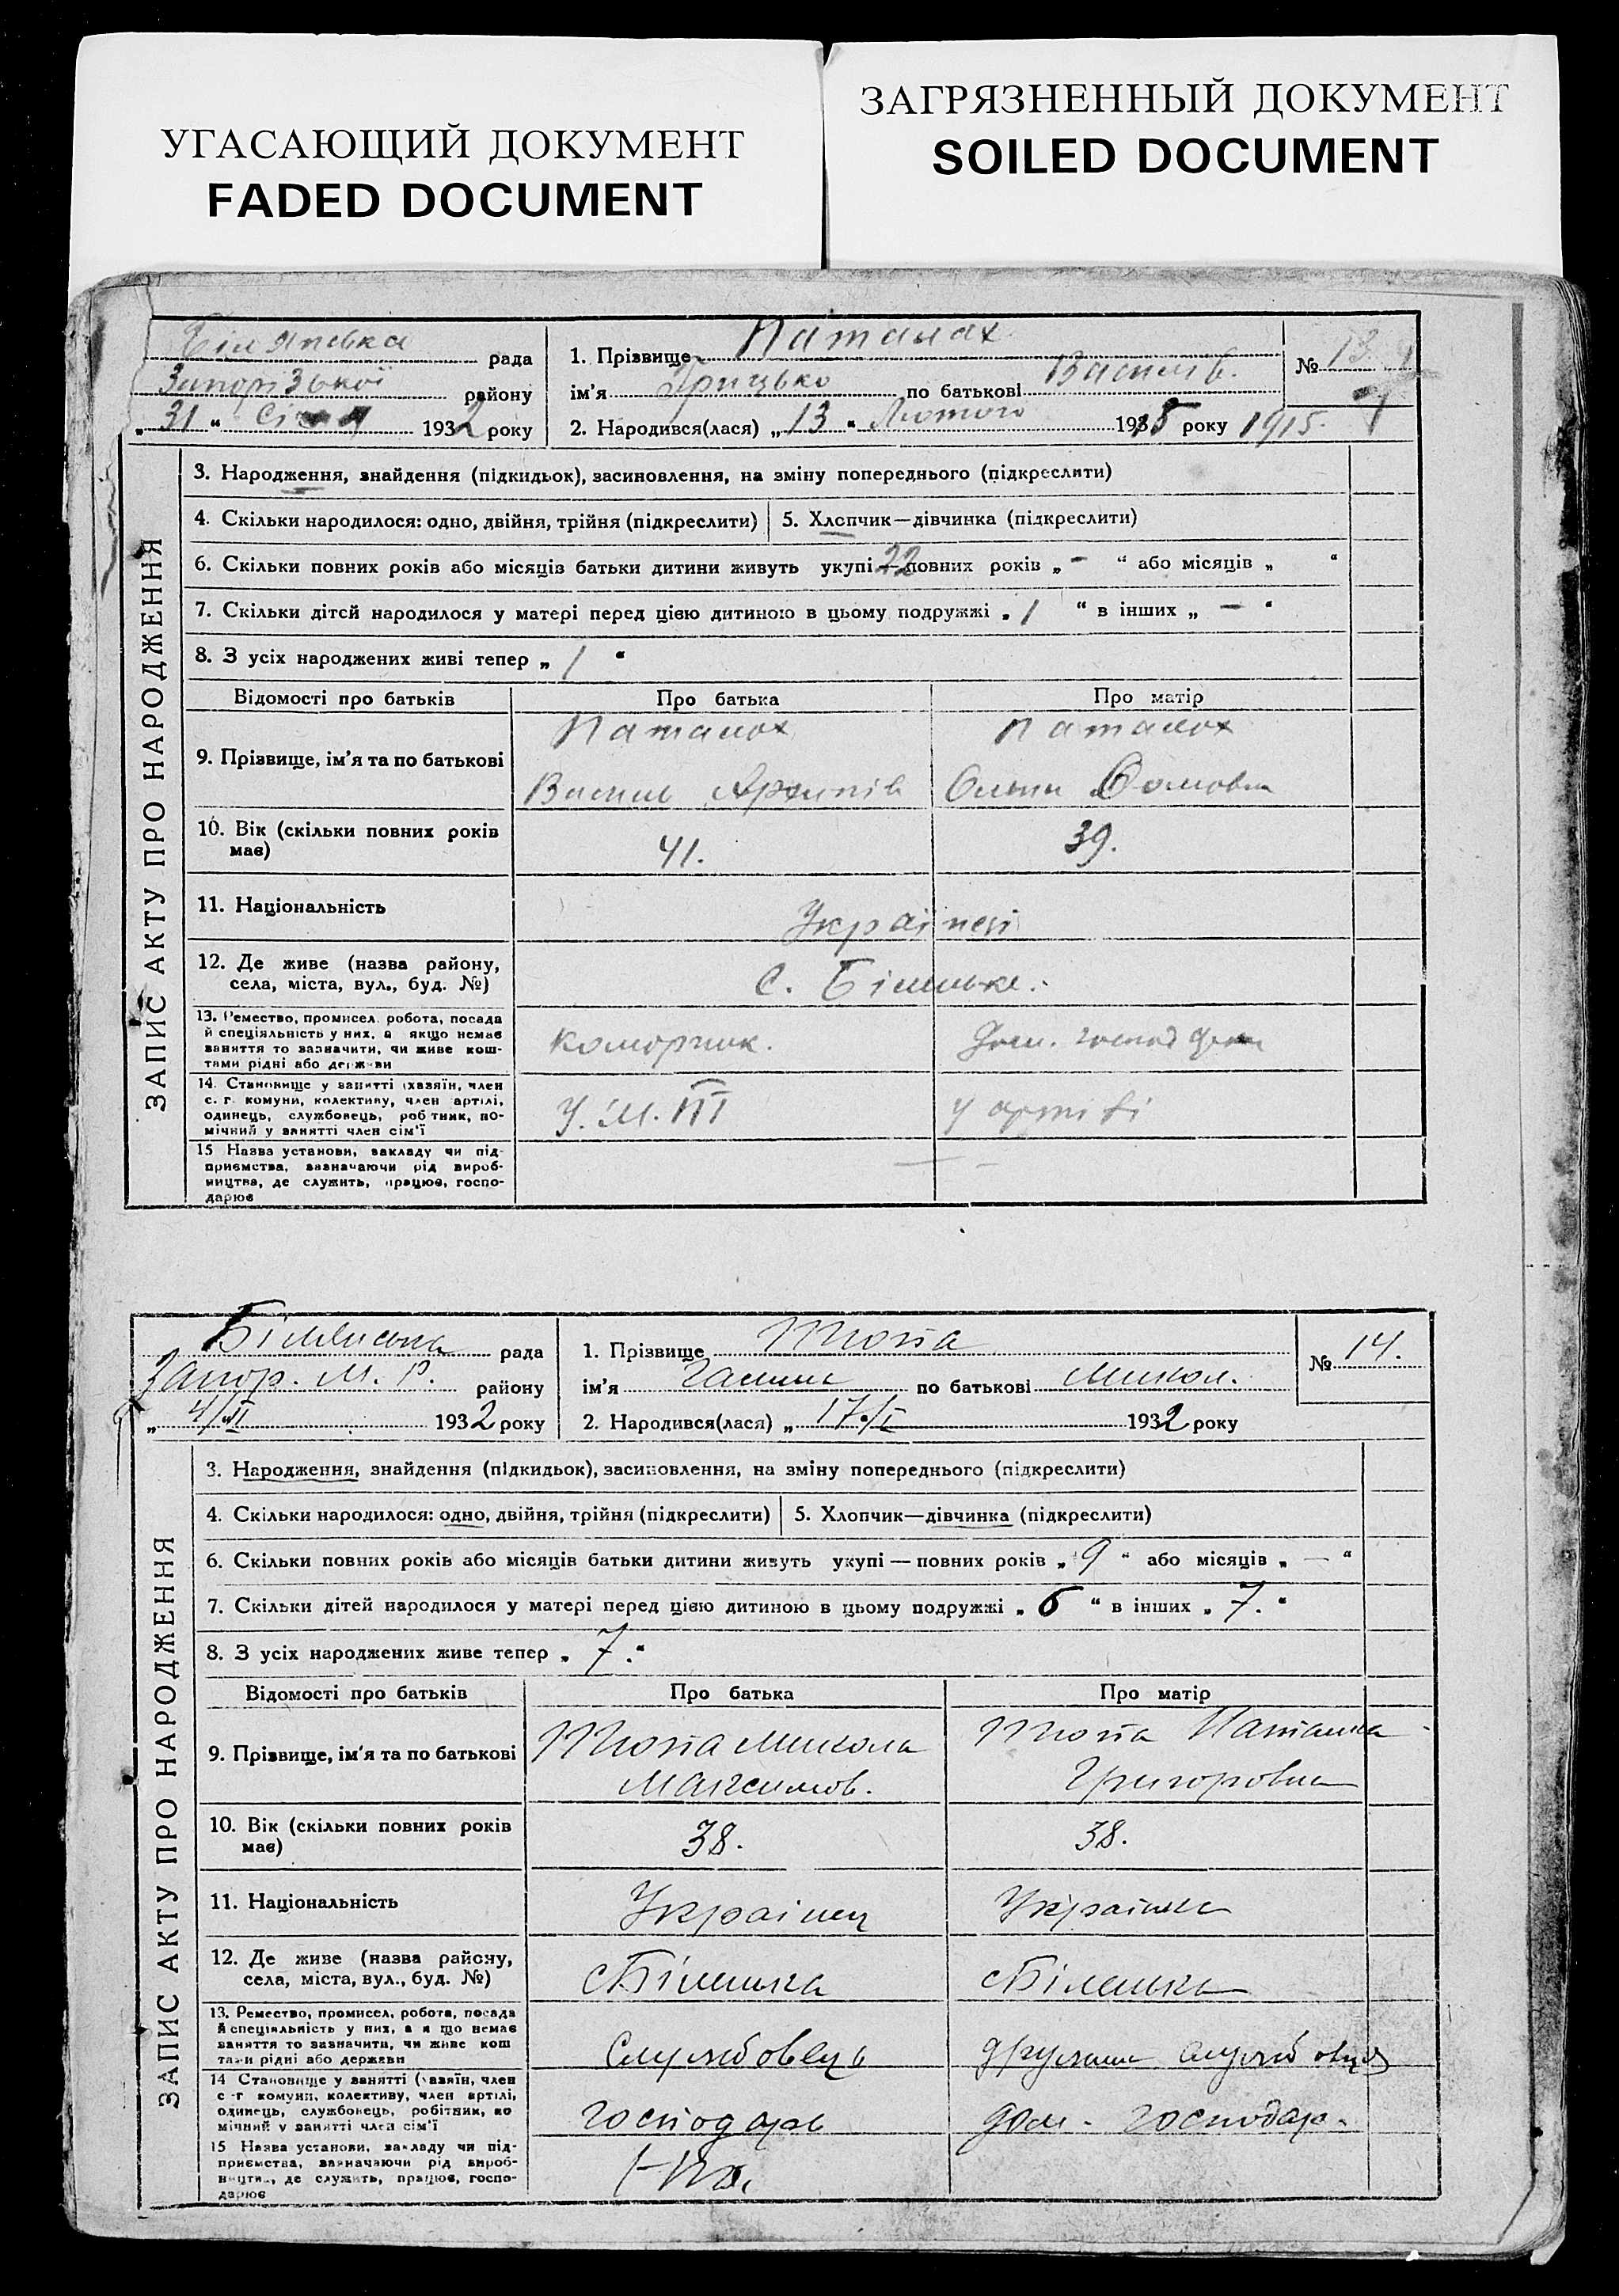 УГАСАЮЩИЙ ДОКУМЕНТ
FADED DOCUMENT
ЗАГРЯЗНЕННЫЙ ДОКУМЕНТ
SOILED DOCUMENT
рада
Запорізької району
„ 31 “ Січня 1932 року
1. Прізвище Паталах
ім'я Грицько по батькові Василів.
2. Народився(лася) „ 13 “ Лютого 1915 року 1915.
№ 13.
ЗАПИС АКТУ ПРО НАРОДЖЕННЯ
3. Народження, знайдення (підкидьок), засиновлення, на зміну попереднього (підкреслити)
4. Скільки народилося: одно, двійня, трійня (підкреслити) 5. Хлопчик—дівчинка (підкреслити)
6. Скільки повних років або місяців батьки дитини живуть укупі 22 повних років „ - “ або місяців „ “
7. Скільки дітей народилося у матері перед цією дитиною в цьому подружжі „ 1 “ в інших „ — “
8. З усіх народжених живі тепер „ 1 “
Відомості про батьків Про батька Про матір
9. Прізвище, ім'я та по батькові
Паталах Паталах
Василь Архипів
10. Вік (скільки повних років має)
41. 39.
11. Національність
Українці
12. Де живе (назва району, села, міста, вул., буд. №)
с. Біленьке.
13. Ремество, промисел, робота, посада
й спеціяльність у них, а якщо немає
заняття то зазначити, чи живе кош-
тами рідні або держави
коморник. Дом. господ
14. Становище у занятті (хазяїн, член
с. г. комуни, колективу, член артілі,
одинець, службовець, робітник, по-
мічний у занятті член сім'ї
у артілі
15 Назва установи, закладу чи під-
приємства, зазначаючи рід вироб-
ництва, де служить, працює, госпо-
дарює
Біленська рада
Запор. М. Р. району
„ 4/II 1932 року
1. Прізвище
ім'я Галина по батькові Микол.
2. Народився(лася) „ 17/I 1932 року
№ 14.
ЗАПИС АКТУ ПРО НАРОДЖЕННЯ
3. Народження, знайдення (підкидьок), засиновлення, на зміну попереднього (підкреслити)
4. Скільки народилося: одно, двійня, трійня (підкреслити) 5. Хлопчик—дівчинка (підкреслити)
6. Скільки повних років або місяців батьки дитини живуть укупі — повних років „ 9 “ або місяців „ — “
7. Скільки дітей народилося у матері перед цією дитиною в цьому подружжі „ 6 “ в інших „ 7. “
8. З усіх народжених живе тепер „ 7. “
Відомості про батьків Про батька Про матір
9. Прізвище, ім'я та по батькові
Микола Наталка
Максимов. Григоровна
10. Вік (скільки повних років має)
38. 38.
11. Національність
Українец Українка
12. Де живе (назва району, села, міста, вул., буд. №)
с Біленька с Біленька
13. Ремество, промисел, робота, посада
й спеціяльність у них, а якщо немає
заняття то зазначити, чи живе кош
тами рідні або держави
Службовець дружина службовця
14 Становище у занятті (хазяїн, член
с-г комуни, колективу, член артілі,
одинець, службовець, робітник, по
мічний у занятті член сім'ї
господарь дом. господар.
15 Назва установи, закладу чи під-
приємства, зазначаючи рід вироб-
ництва, де служить, працює, госпо-
дарює